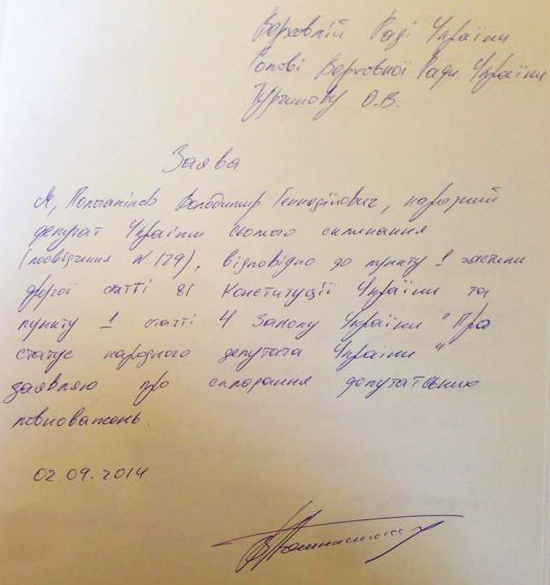 Верховній Раді України
Голові Верховної Ради України
Турчинову О.В.
Заява
Я, Володимир Геннадійович, народний
депутат України сьомого скликання
(посвідчення № 129), відповідно до пункту 1 частини
другої статті 81 Конституції України та
пункту 1 статті 4 Закону України "Про
статус народного депутата України"
заявляю про складання депутатських
повноважень.
02.09.2014